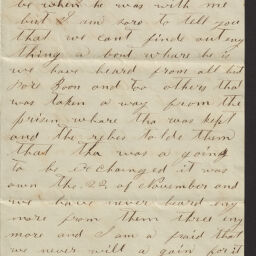 be when he was with me
but I am sory to tell you
that we cant finde out eny
thing a bout whare he is
we have heard from all but
and too others that
was taken a way from the
prisin whare tha was kept
and the rebes tolde them
that tha was a going
to be exchainged it was
own the 22 of November and
we have never heard eny
more from them three eny
more and I am a fraid that
we never will a gain for it